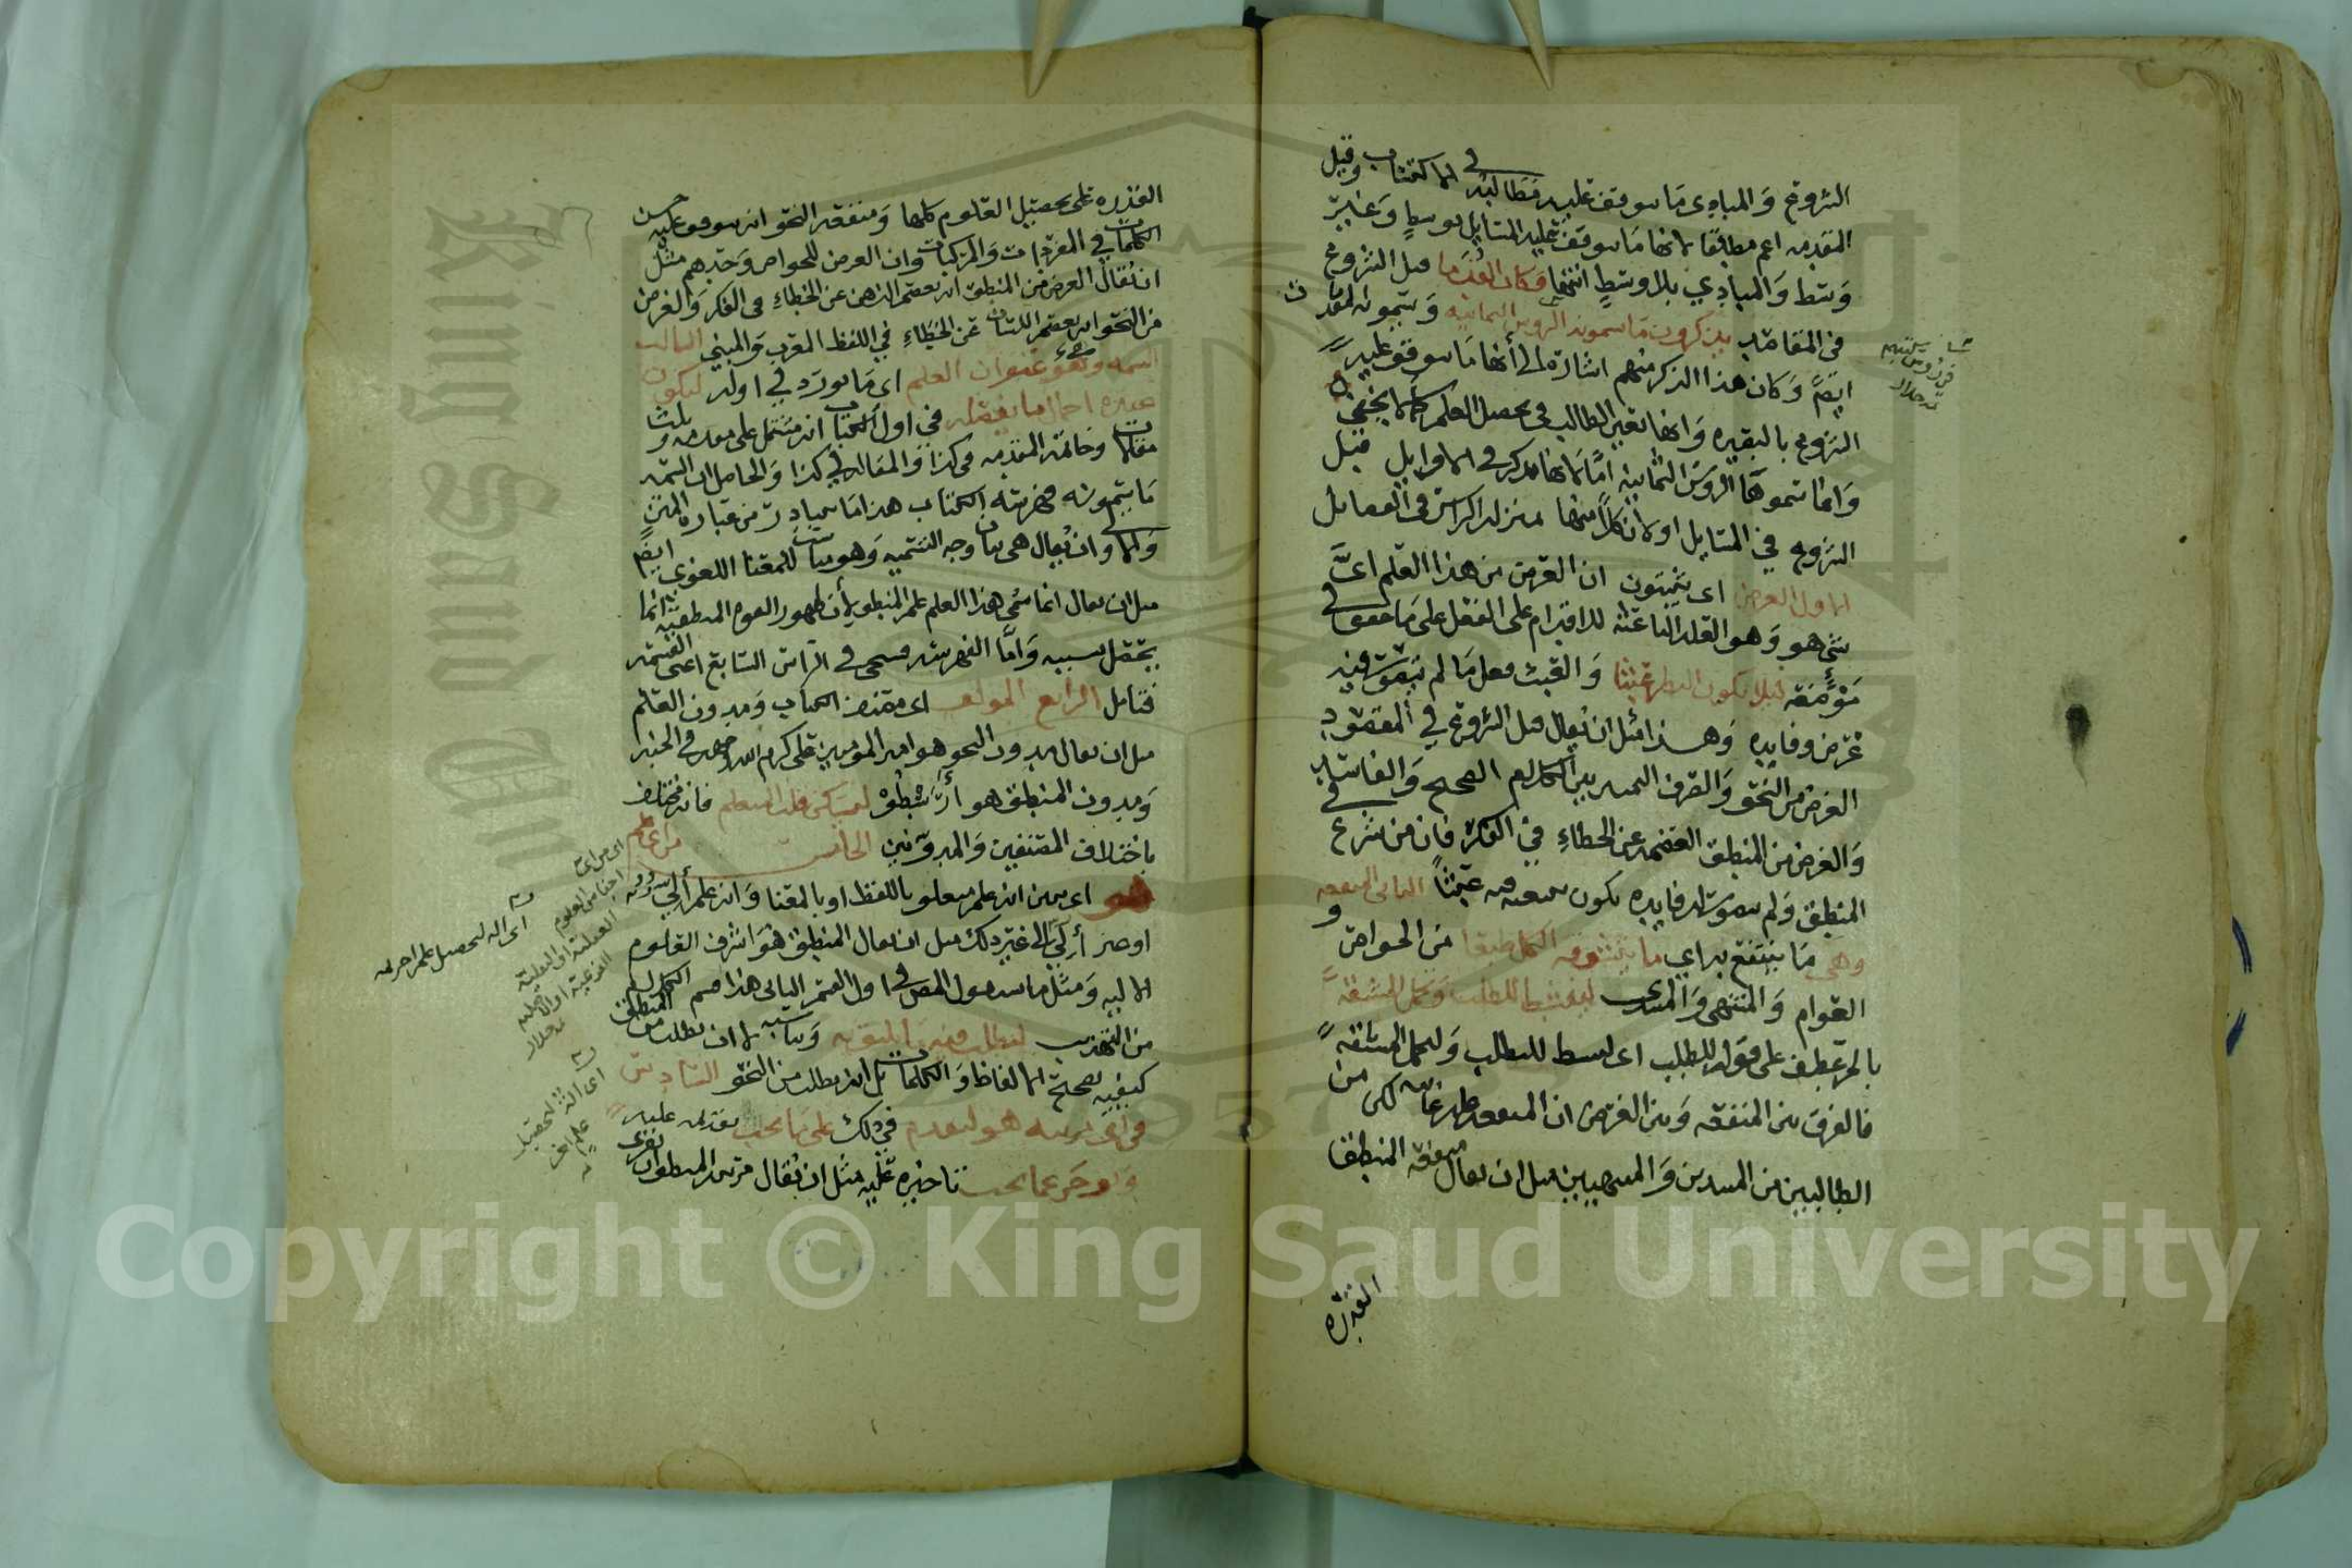 الشروع والمبادى ما يتوقف عليه مطالبه في الاكتساب وقيل
المقدمه اعم مطلقا لانها ما يتوقف عليه المسايل بوسط وغير
وسط والمبادي بلا وسط انتهى وكان القدما قبل الشروع
في المقاصد يذكرون ما يسمونه الروس الثمانيه ويسمونه المقدمات
ايضا وكان هذا الذكر منهم اشارة الى أنها ما يتوقف عليه
الشروع بالبصيره وانها تعين الطالب في تحصيل العلم كما لا يخفى
وانما سموها الروس الثمانيه اما لانها تذكر في الاوايل قبل
الشروع في المسايل او لأن كلا منها بمنزله الراس في الفصايل
الاول الغرض اي يثبتون ان الغرض من هذا العلم اي
شي هو وهو العله الباعثه للاقدام على الفعل على ما حقق في
موضعه ليلا يكون النظر عبثا والعبث فعل ما لم يتصور فيه
غرض وفايده وهذا مثل ان يقال قبل الشروع في المقصود
الغرض من النحو والصرف التمييز بين الكلام الصحيح والفاسد
والغرض من المنطق العصمه عن الخطاء في الفكر فان من شرع في
المنطق ولم يتصور له فايده يكون سعيه فيه عبثا الثانى المنفعه
وهي ما ينتفع به اي ما يتشوقه الكل طبعا من الخواص و
العوام والمنتهى والمبتدى لينشط للطلب وتحمل المشقة
بالجر عطف على قوله للطلب اى لينبسط للطلب ولتحمل المشقة
فالفرق بين المنفعه وبين الغرض ان المنفعه عامه لكل من
الطالبين من المبتدين والمنتهيين مثل ان يقال منفعه المنطق
القدره
القدره على تحصيل العلوم كلها ومنفعه النحو انه يتوقف عليه حسن
الكلمات في المفردات والمركبات وان الغرض للخواص وحدهم مثل
ان يقال الغرض من المنطق انه يعصم الذهن عن الخطاء في الفكر والغرض
من النحو انه يعصم اللسان عن الخطاء في اللفظ المعرب والمبني الثالث
السمه وهو عنوان العلم اي ما يورد في اوله ليكون
عنده اجمال ما يفصله في اول الكتاب انه مشتمل على مقدمه وثلث
مقالات وخاتمه المقدمه في كذا والمقاله في كذا والحاصل ان السمه
ما يسمونه فهرسته الكتاب هذا ما يتبادر من عباره المتن
والاولى ان يقال هي بيان وجه التسميه وهو مناسب للمعنا اللغوي ايضا
مثل ان يقال انما سمي هذا العلم علم المنطق لأن ظهور القوه المنطقيه انما
يحصل بسببه وأما الفهرسته فسيجى في الراس السابع اعنى القسمه
فتامل الرابع المولف اى مصنف الكتاب ومدون العلم
مثل ان يقال مدون النحو هو امير المومنين على كرم الله وجهه فى الجنه
ومدون المنطق هو أرسطو ليسكن قلب المتعلم فانه مختلف
باختلاف المصنفين والمدونين الخامس من اى علم
هو اى يبين انه علم متعلق باللفظ او بالمعنا وانه علم ألي
او غير ألي الى غير ذلك مثل ان يقال المنطق هو اشرف العلوم
الاليه ومثل ما سيقول المص في اول القسم الثانى هذا قسم الكلام
من التهذيب ليطلب فيه ما يليق به ويناسبه لا ان يطلب من المنطق
كيفيه تصحيح الالفاظ والكلمات بل انه يطلب من النحو السادس
في اي مرتبه هو ليقدم في ذلك على ما يجب تقديمه عليه
ويوخر عما يجب تاخيره عليه مثل ان يقال مرتبه المنطق ان يقرى
اى من اى
اجناس العلوم
العقلية او النقلية
الفرعية او الاصليه
اى اله لتحصيل علم اخر
اى الة لتحصيل
علم اخر